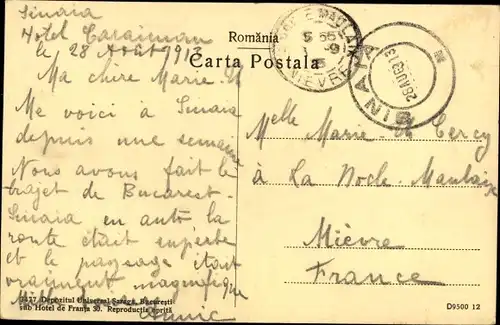 Sinaia
Hotel Caraiman
le 28 Août 1913
Ma chère Marie
Me voici à Sinaia
depuis une semaine
Nous avons fait le
trajet de Bucarest-
Sinaia en auto la
route était superbe
et le paysage était
vraiment magnifique
Annie
România
Carta Postala
SINAIA
28AUG913
NIEVRE
Melle Marie Cercy
à La Roche-Maulaix
Nièvre
France
7427 Depozitul Universal Saraga, Bucuresti
sub Hotel de Franța 30. Reproducția oprită
D9500 12